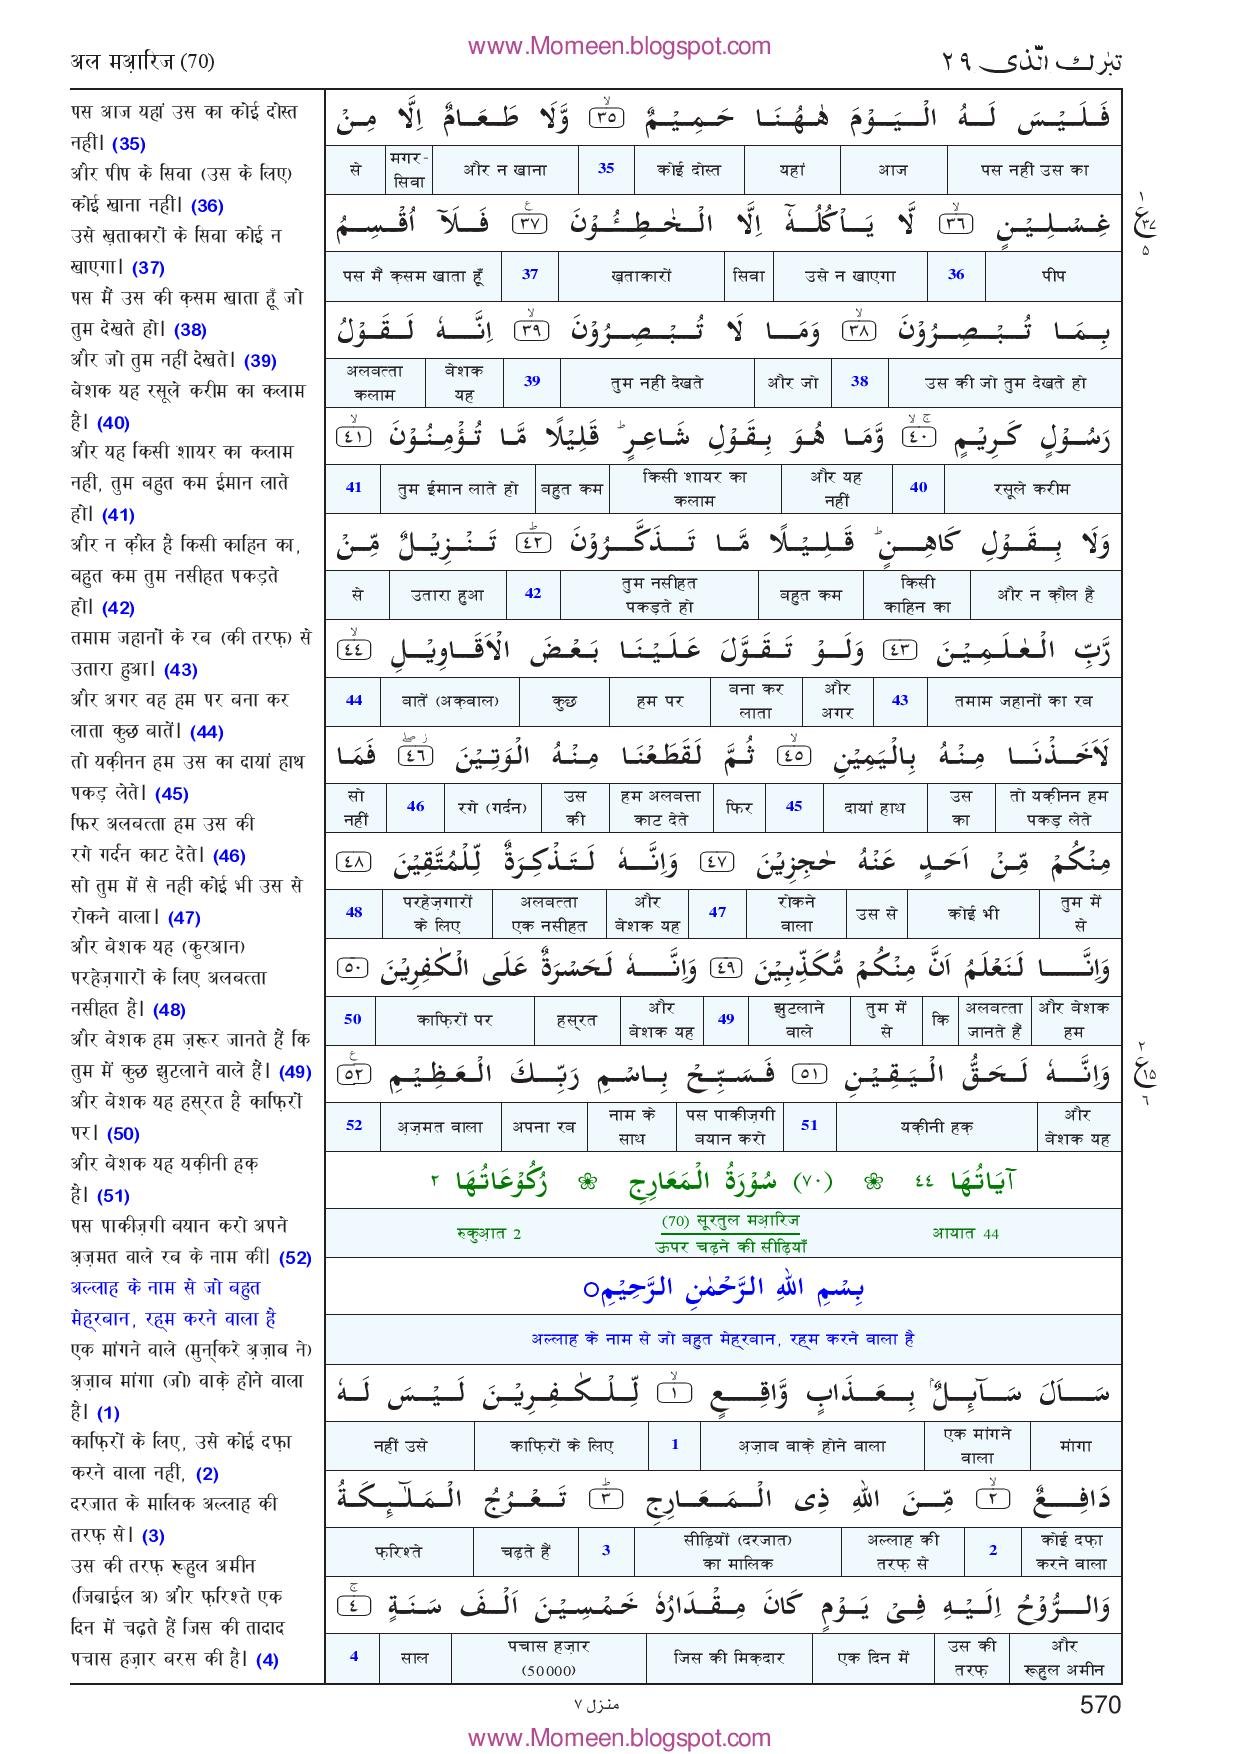 www.Momeen.blogspot.com
अल मआ़रिज (70)
تبٰرك الّذی ٢٩
पस आज यहां उस का कोई दोस्त
नहीं। (35)
और पीप के सिवा (उस के लिए)
कोई खाना नहीं। (36)
उसे ख़ताकारों के सिवा कोई न
खाएगा। (37)
पस मैं उस की क़सम खाता हूँ जो
तुम देखते हो। (38)
और जो तुम नहीं देखते। (39)
बेशक यह रसूले करीम का कलाम
है। (40)
और यह किसी शायर का कलाम
नहीं, तुम बहुत कम ईमान लाते
हो। (41)
और न क़ौल है किसी काहिन का,
बहुत कम तुम नसीहत पकड़ते
हो। (42)
तमाम जहानों के रब (की तरफ़) से
उतारा हुआ। (43)
और अगर वह हम पर बना कर
लाता कुछ बातें। (44)
तो यक़ीनन हम उस का दायां हाथ
पकड़ लेते। (45)
फिर अलबत्ता हम उस की
रगे गर्दन काट देते। (46)
सो तुम में से नहीं कोई भी उस से
रोकने वाला। (47)
और बेशक यह (कुरआन)
परहेज़गारों के लिए अलबत्ता
नसीहत है। (48)
और बेशक हम ज़रूर जानते हैं कि
तुम में कुछ झुटलाने वाले हैं। (49)
और बेशक यह हस्रत है काफ़िरों
पर। (50)
और बेशक यह यक़ीनी हक़
है। (51)
पस पाकीज़गी बयान करो अपने
अ़ज़मत वाले रब के नाम की। (52)
अल्लाह के नाम से जो बहुत
मेह्रबान, रह्म करने वाला है
एक मांगने वाले (मुन्किरे अ़ज़ाब ने)
अ़ज़ाब मांगा (जो) वाक़े होने वाला
है। (1)
काफ़िरों के लिए, उसे कोई दफ़ा
करने वाला नहीं, (2)
दरजात के मालिक अल्लाह की
तरफ़ से। (3)
उस की तरफ़ रूहुल अमीन
(जिब्राईल अ) और फ़रिश्ते एक
दिन में चढ़ते हैं जिस की तादाद
पचास हज़ार बरस की है। (4)
فَلَيْسَ لَهُ الْيَوْمَ هٰهُنَا حَمِيْمٌ ۙ ٣٥ وَّلَا طَعَامٌ اِلَّا مِنْ
पस नहीं उस का आज यहां कोई दोस्त 35 और न खाना मगर-सिवा से
غِسْلِيْنٍ ۙ ٣٦ لَّا يَاْكُلُهٗٓ اِلَّا الْخٰطِـُٔوْنَ ۧ ٣٧ فَلَآ اُقْسِمُ
١ ع ٣٧ ٥
पीप 36 उसे न खाएगा सिवा ख़ताकारों 37 पस मैं क़सम खाता हूँ
بِمَا تُبْصِرُوْنَ ۙ ٣٨ وَمَا لَا تُبْصِرُوْنَ ۙ ٣٩ اِنَّهٗ لَقَوْلُ
उस की जो तुम देखते हो 38 और जो तुम नहीं देखते 39 बेशक यह अलबत्ता कलाम
رَسُوْلٍ كَرِيْمٍ ۙۚ ٤٠ وَّمَا هُوَ بِقَوْلِ شَاعِرٍ ؕ قَلِيْلًا مَّا تُؤْمِنُوْنَ ۙ ٤١
रसूले करीम 40 और यह नहीं किसी शायर का कलाम बहुत कम तुम ईमान लाते हो 41
وَلَا بِقَوْلِ كَاهِنٍ ؕ قَلِيْلًا مَّا تَذَكَّرُوْنَ ؕ ٤٢ تَنْزِيْلٌ مِّنْ
और न क़ौल है किसी काहिन का बहुत कम तुम नसीहत पकड़ते हो 42 उतारा हुआ से
رَّبِّ الْعٰلَمِيْنَ ٤٣ وَلَوْ تَقَوَّلَ عَلَيْنَا بَعْضَ الْاَقَاوِيْلِ ۙ ٤٤
तमाम जहानों का रब 43 और अगर बना कर लाता हम पर कुछ बातें (अक़वाल) 44
لَاَخَذْنَا مِنْهُ بِالْيَمِيْنِ ۙ ٤٥ ثُمَّ لَقَطَعْنَا مِنْهُ الْوَتِيْنَ ؗۖ ٤٦ فَمَا
तो यक़ीनन हम पकड़ लेते उस का दायां हाथ 45 फिर हम अलबत्ता काट देते उस की रगे (गर्दन) 46 सो नहीं
مِنْكُمْ مِّنْ اَحَدٍ عَنْهُ حٰجِزِيْنَ ٤٧ وَاِنَّهٗ لَتَذْكِرَةٌ لِّلْمُتَّقِيْنَ ٤٨
तुम में से कोई भी उस से रोकने वाला 47 और बेशक यह अलबत्ता एक नसीहत परहेज़गारों के लिए 48
وَاِنَّا لَنَعْلَمُ اَنَّ مِنْكُمْ مُّكَذِّبِيْنَ ٤٩ وَاِنَّهٗ لَحَسْرَةٌ عَلَى الْكٰفِرِيْنَ ٥٠
और बेशक हम अलबत्ता जानते हैं कि तुम में से झुटलाने वाले 49 और बेशक यह हस्रत काफ़िरों पर 50
وَاِنَّهٗ لَحَقُّ الْيَقِيْنِ ٥١ فَسَبِّحْ بِاسْمِ رَبِّكَ الْعَظِيْمِ ۧ ٥٢
٢ ع ١٥ ٦
और बेशक यह यक़ीनी हक़ 51 पस पाकीज़गी बयान करो नाम के साथ अपना रब अ़ज़मत वाला 52
آيَاتُهَا ٤٤ ❀ (٧٠) سُوْرَةُ الْمَعَارِجِ ❀ رُكُوْعَاتُهَا ٢
आयात 44 (70) सूरतुल मआ़रिज रुकुआ़त 2
ऊपर चढ़ने की सीढ़ियाँ
بِسْمِ اللهِ الرَّحْمٰنِ الرَّحِيْمِ ○
अल्लाह के नाम से जो बहुत मेह्रबान, रह्म करने वाला है
سَاَلَ سَآىِٕلٌۢ بِعَذَابٍ وَّاقِعٍ ۙ ١ لِّلْكٰفِرِيْنَ لَيْسَ لَهٗ
मांगा एक मांगने वाला अ़ज़ाब वाक़े होने वाला 1 काफ़िरों के लिए नहीं उसे
دَافِعٌ ۙ ٢ مِّنَ اللهِ ذِى الْمَعَارِجِ ؕ ٣ تَعْرُجُ الْمَلٰٓىِٕكَةُ
कोई दफ़ा करने वाला 2 अल्लाह की तरफ़ से सीढ़ियों (दरजात) का मालिक 3 चढ़ते हैं फ़रिश्ते
وَالرُّوْحُ اِلَيْهِ فِيْ يَوْمٍ كَانَ مِقْدَارُهٗ خَمْسِيْنَ اَلْفَ سَنَةٍ ۚ ٤
और रूहुल अमीन उस की तरफ़ एक दिन में जिस की मिक़दार पचास हज़ार (50000) साल 4
منزل ٧
570
www.Momeen.blogspot.com